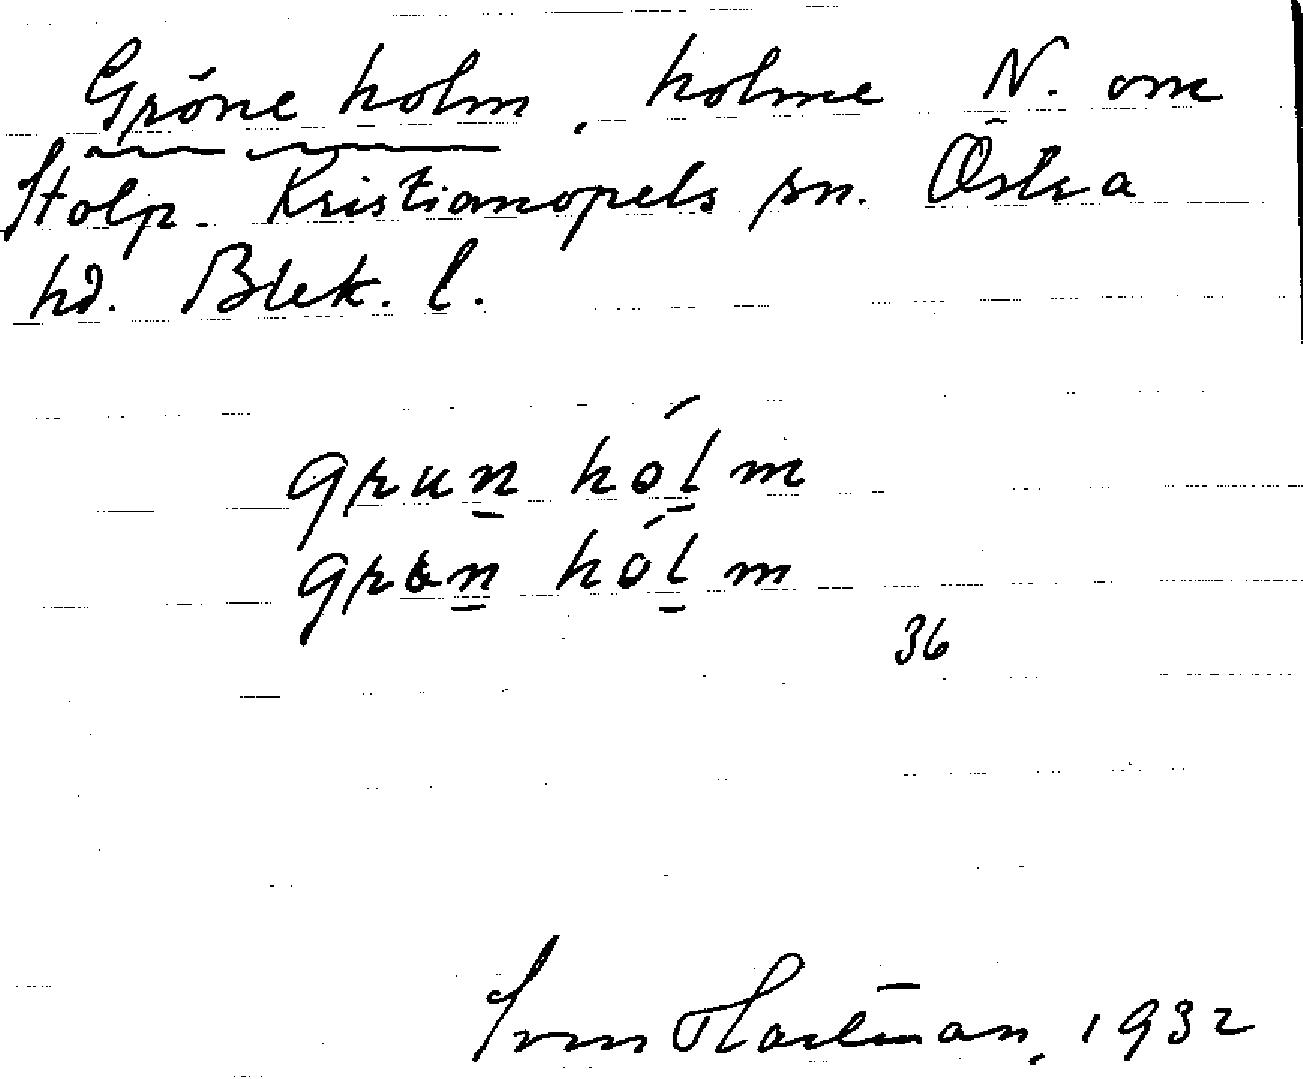 Gröne holm, holme N. om
Stolp. Kristianopels sn. Östra
hd. Blek. l.
grun hólm
grɵn hólm
36
Sven Hartman, 1932